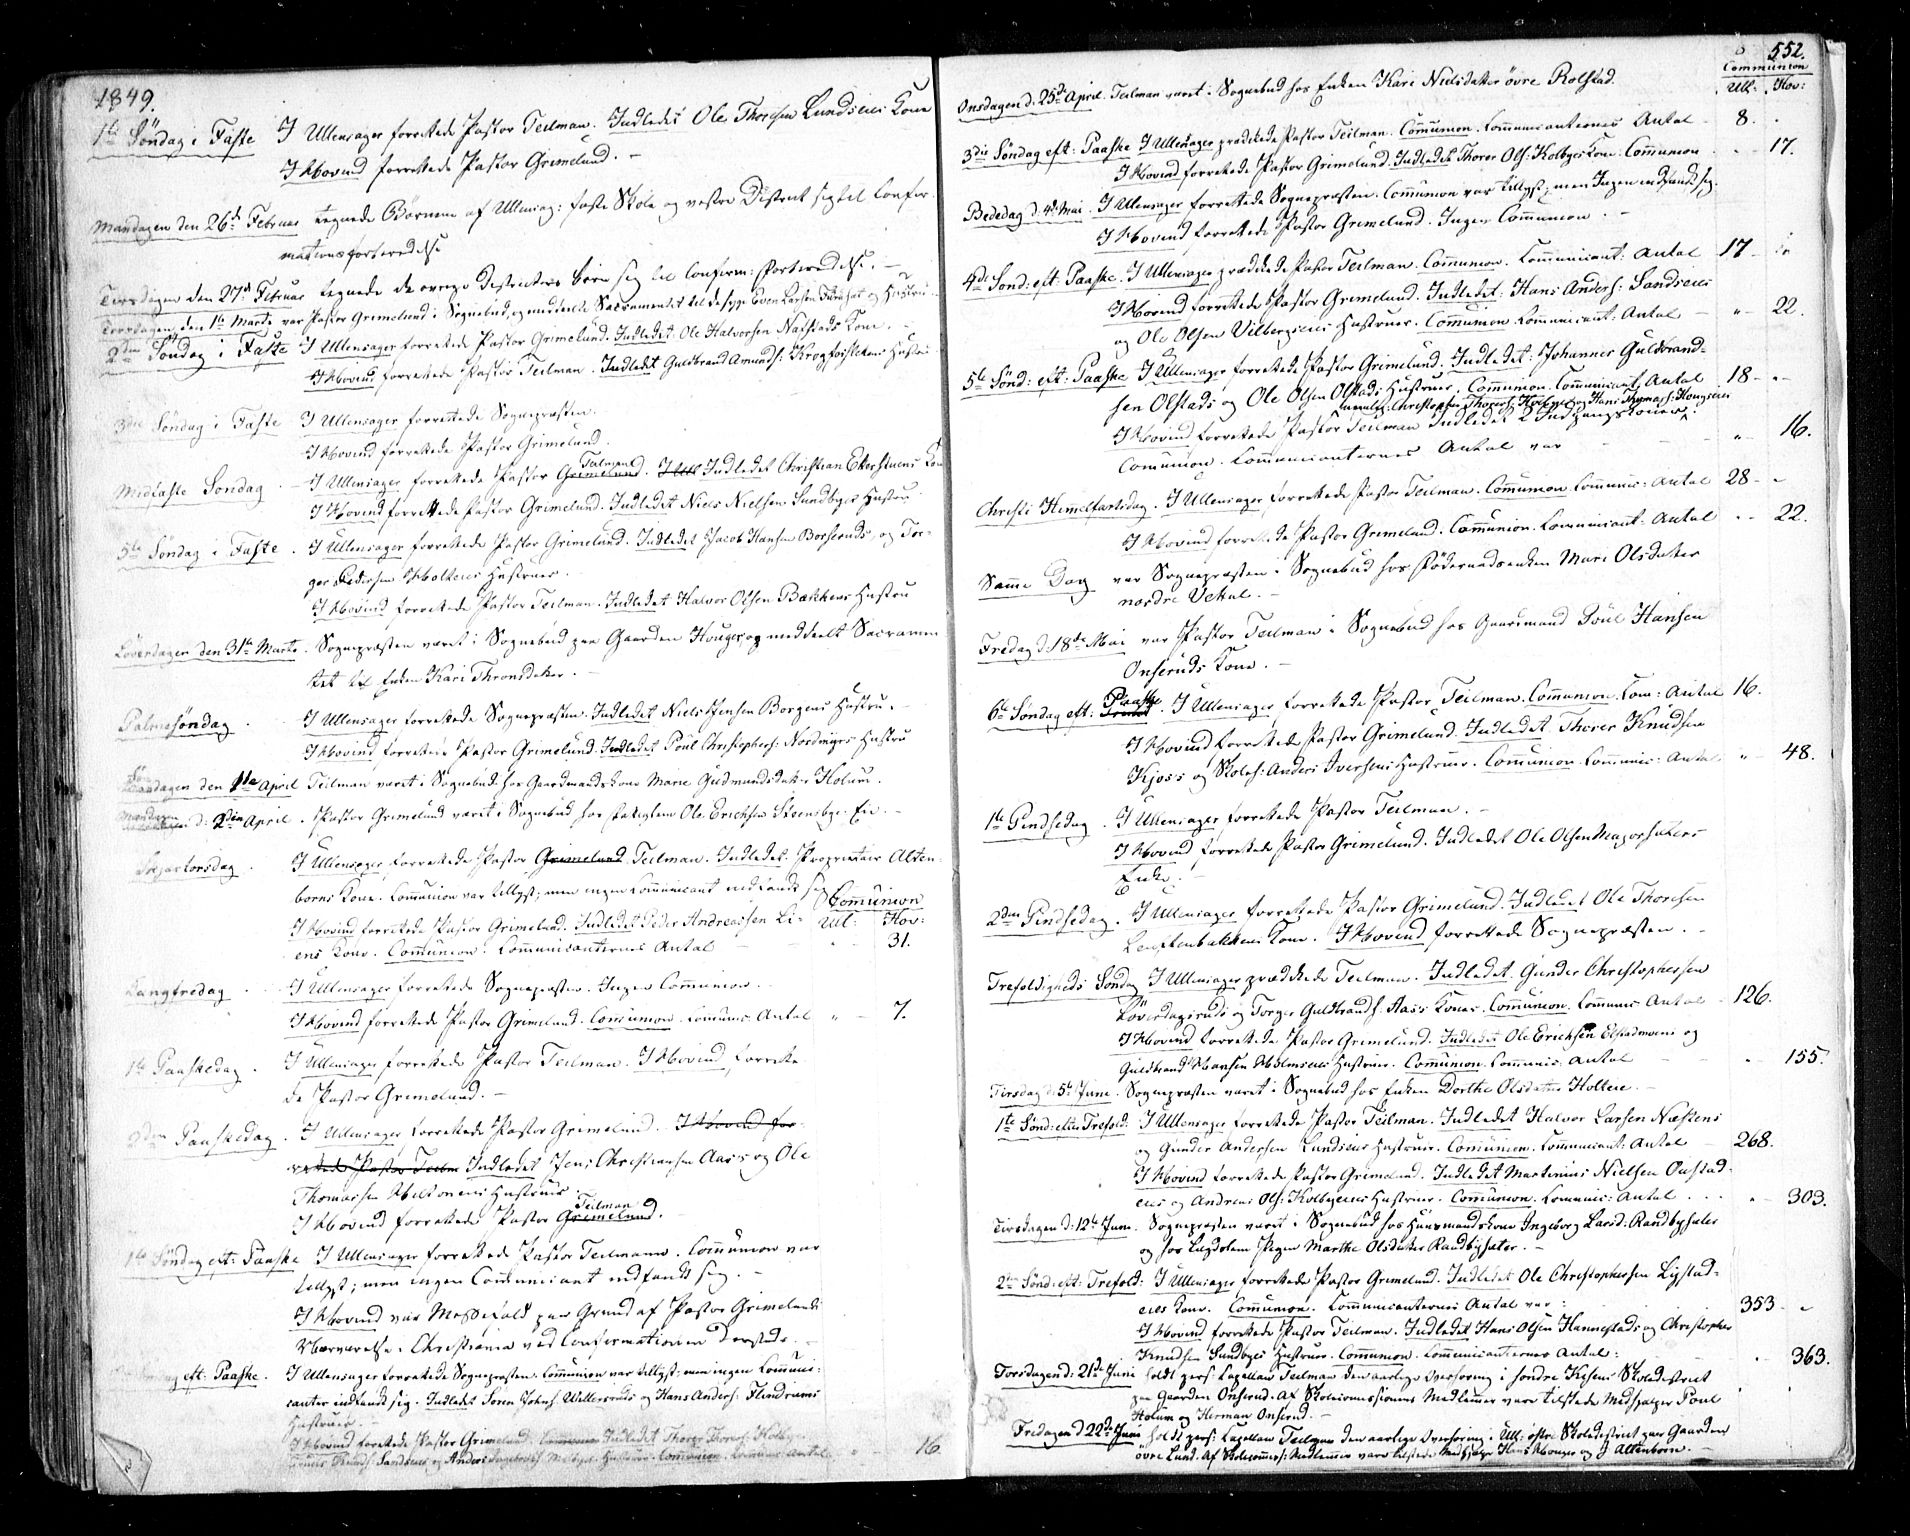 1849.
1ste Söndag i Faste I Ullensager forrettede Pastor Teilman. Indledet Ole Thoresen Lundseies Kone
I Hovind forrettede Pastor Grimelund. —
Mandagen den 26de Februar tegnede Börnene af Ullensag: faste Skole og vestre District sig til Confir-
mationsforberedelse
Tirsdagen den 27de Februar tegnede de övrige Districters Börn sig til Confirm: Forberedelse. —
Torsdagen den 1ste Marts var Pastor Grimelund i Sognebud, og meddeelte Sacramentet til de syge Even Larsen og Hustru
2den Söndag i Faste I Ullensager forrettede Pastor Grimelund. Indledet Ole Halvorsen Kone. —
I Hovind forrettede Pastor Teilman. Indledet Guldbrand Amunds: Krogfosslökens Hustru
3die Söndag i Faste I Ullensager forrettede Sognepræsten.
I Hovind forrettede Pastor Grimelund.
Midfaste Söndag I Ullensager forrettede Pastor Grimelund Teilman. I Ull Indledet Christian Ekerstuens Kone
I Hovind forrettede Pastor Grimelund. Indledet Niels Nielsen Sundbyes Hustru
5te Söndag i Faste. I Ullensager forrettede Pastor Grimelund. Indledet Jacob Hansen Borgeruds og Tor-
ger Pedersen Holteies Hustruer.
I Hovind forrettede Pastor Teilman. Indledet Halvor Olsen Bakkens Hustru
Löverdagen den 31te Marts. Sognepræsten været i Sognebud paa Gaarden Houger, og meddeelt Sacramen
tet til Enken Kari Thronsdatter. —
Palmesöndag. I Ullensager forrettede Sognepræsten. Indledet Niels Jensen Borgens Hustru. —
I Hovind forrettede Pastor Grimelund. Indledet Poul Christophers: Nordbyes Hustru
Söndagen den 1ste April Teilman været i Sognebud hos Gaardmandskone Marie Gudmundsdatter Holum.
Mandagen d: 2den April. Pastor Grimelund været i Sognebud hos Ole Erichsen Steensbye Eie. —
Skjærtorsdag. I Ullensager forrettede Pastor Grimelund Teilman. Indledet Proprietair Alten-
borns Kone. Communion var tillyst; men ingen Communicant indfandt sig
Communion
I Hovind forrettede Pastor Grimelund. Indledet Peder Andreassen Li- Ull: Hov:
eies Kone. Communion. Communicanternes Antal 31.
Langfredag. I Ullensager forrettede Sognepræsten. Ingen Communion.
I Hovind forrettede Pastor Grimelund. Communion. Commun: Antal " — 7.
1ste Paaskedag. I Ullensager forrettede Pastor Teilman. I Hovind forrette-
de Pastor Grimelund. —
2den Paaskedag. I Ullensager forrettede Pastor Grimelund. I Hovind for-
rettede Pastor Teilm Indledet Jens Christiansen Aass og Ole
Thomassen Hustruer.
I Hovind forrettede Pastor Grimelund Teilman.
1ste Söndag eft: Paaske I Ullensager forrettede Pastor Teilmann. Communion var
tillyst; men ingen Communicant indfandt sig. —
I Hovind var Messefald paa Grund af Pastor Grimelunds
Nærværelse i Christiania ved Confirmationen dersteds. —
Söndag eft: Paaske. I Ullensager forrettede Sognepræsten. Communion var tillyst; men ingen Communi-
canter indfandt sig. Indledet Sören Johns: Willersruds og Hans Anders: Flindrums
Hustruer. —
I Hovind forrettede Pastor Grimelund. Communion Indledet Thorer Thores: Kolbye
Sandseies og Anders Hustruer. Communion. Commun: Antal " 16
552.
Communion
Ull: Hov:
Onsdagen d: 25de April. Teilman været i Sognebud hos Enken Kari Nielsdatter övre Rolstad.
3die Söndag eft: Paaske I Ullensager prædikede Pastor Teilman. Communion. Communicanternes Antal 8.
I Hovind forrettede Pastor Grimelund. Indledet Thorer Ols: Kolbyes Kone. Communion 17.
Bededag d: 4de Mai. I Ullensager forrettede Sognepræsten. Communion var tillyst; men Ingen indfandt sig.
I Hovind forrettede Pastor Grimelund. Ingen Communion. —
4de Sönd: eft: Paaske. I Ullensager prædikede Pastor Teilman. Communion. Communicant: Antal 17 —
I Hovind forrettede Pastor Grimelund. Indledet: Hans Anders: Sandseies
og Ole Olsen Vilbergseies Hustruer. Communion. Communicant: Antal — " — 22.
5te Sönd: eft: Paaske I Ullensager forrettede Pastor Grimelund. Indledet: Johannes Guldbrand-
sen Olstads og Ole Olsen Olstads Hustruer. Communion. Communicant: Antal 18 — "
nemlig: Christopher Thorers: Kolbyes og Hans Thomas: Hougseies
I Hovind forrettede Pastor Teilman Indledet 2 Indgangskoner.
Communion. Communicanternes Antal var — " — 16.
Christi Himmelfartsdag. I Ullensager forrettede Pastor Teilman. Communion. Communic: Antal 28 — "
I Hovind forrettede Pastor Grimelund. Communion. Communicant: Antal " — 22.
Samme Dag var Sognepræsten i Sognebud hos Födernaadsenken Mari Olsdatter
nordre Ukkul. —
Fredag d: 18de Mai var Pastor Teilman i Sognebud hos Gaardmand Poul Hansen
Onseruds Kone. —
6te Söndag eft: Trinit Paaske. I Ullensager forrettede Pastor Teilman. Communion. Com: Antal 16.
I Hovind forrettede Pastor Grimelund. Indledet Thorer Knudsen
Kjoss og Skoleh: Anders Iversens Hustruer. Communion. Communic: Antal " — 48.
1ste Pindsedag. I Ullensager forrettede Pastor Teilman. —
I Hovind forrettede Pastor Grimelund. Indledet Ole Olsen Majorsæters
Enke.
2den Pindsedag. I Ullensager forrettede Pastor Grimelund. Indledet Ole Thoresen
Kone. I Hovind forrettede Sognepræsten. —
Trefoldigheds Söndag I Ullensager prædikede Teilman. Indledet Gunder Christophersen
Löverdagsruds og Torger Guldbrands: Aass Koner. Communion. Communic: Antal 126.
I Hovind forrettede Pastor Grimelund. Indledet Ole Erichsen Elstadmoens og
Guldbrand Hansen Holmseies Hustruer. Communion. Communic: Antal — " — 155.
Tirsdag d: 5te Juni. Sognepræsten været i Sognebud hos Enken Dorthe Olsdatter Holteie. —
1ste Sönd: efter Trefold: I Ullensager forrettede Pastor Teilman. Indledet Halvor Larsen Næssens
og Gunder Andersen Lundseies Hustruer. Communion. Communicant: Antal — 268.
I Hovind forrettede Pastor Grimelund. Indledet Martinius Nielsen Onstad-
eies og Andreas Ols: Kolbyseies Hustruer. Communion. Communic: Antal . . . " — 303.
Tirsdagen d: 12te Juni. Sognepræsten været i Sognebud hos Huusmandskone Ingeborg Larsd: Randbysæter
og hos Lægdslem Pigen Marthe Olsdatter Randbysæter. —
2den Sönd: eft: Trefold: I Ullensager forrettede Pastor Grimelund. Indledet Ole Christophersen Ligstad-
eies Kone. Communion. Communicanternes Antal var: 353 — "
I Hovind forrettede Pastor Teilman. Indledet Hans Olsen Hannestads og Christopher
Knudsen Sundbyes Hustruer. Communion. Communicanternes Antal: " — 363.
Torsdagen d: 21de Juni holdt pers: Capellan Teilman den aarlige Overhöring i söndre Kisens Skoledistrict
paa Gaarden Onserud. Af Skolecommissionens Medlemmer vare tilstede Medhjælper Poul
Holum og Herman Onserud. —
Fredagen d: 22de Juni holdt pers: Capellan Teilman den aarlige Overhöring i Ull: östre Skoledistrict paa Gaarden
övre Lund. Af Skolecommiss: Medlemmer vare tilstede Medhjælper Hans Houger og J Altenborn. —